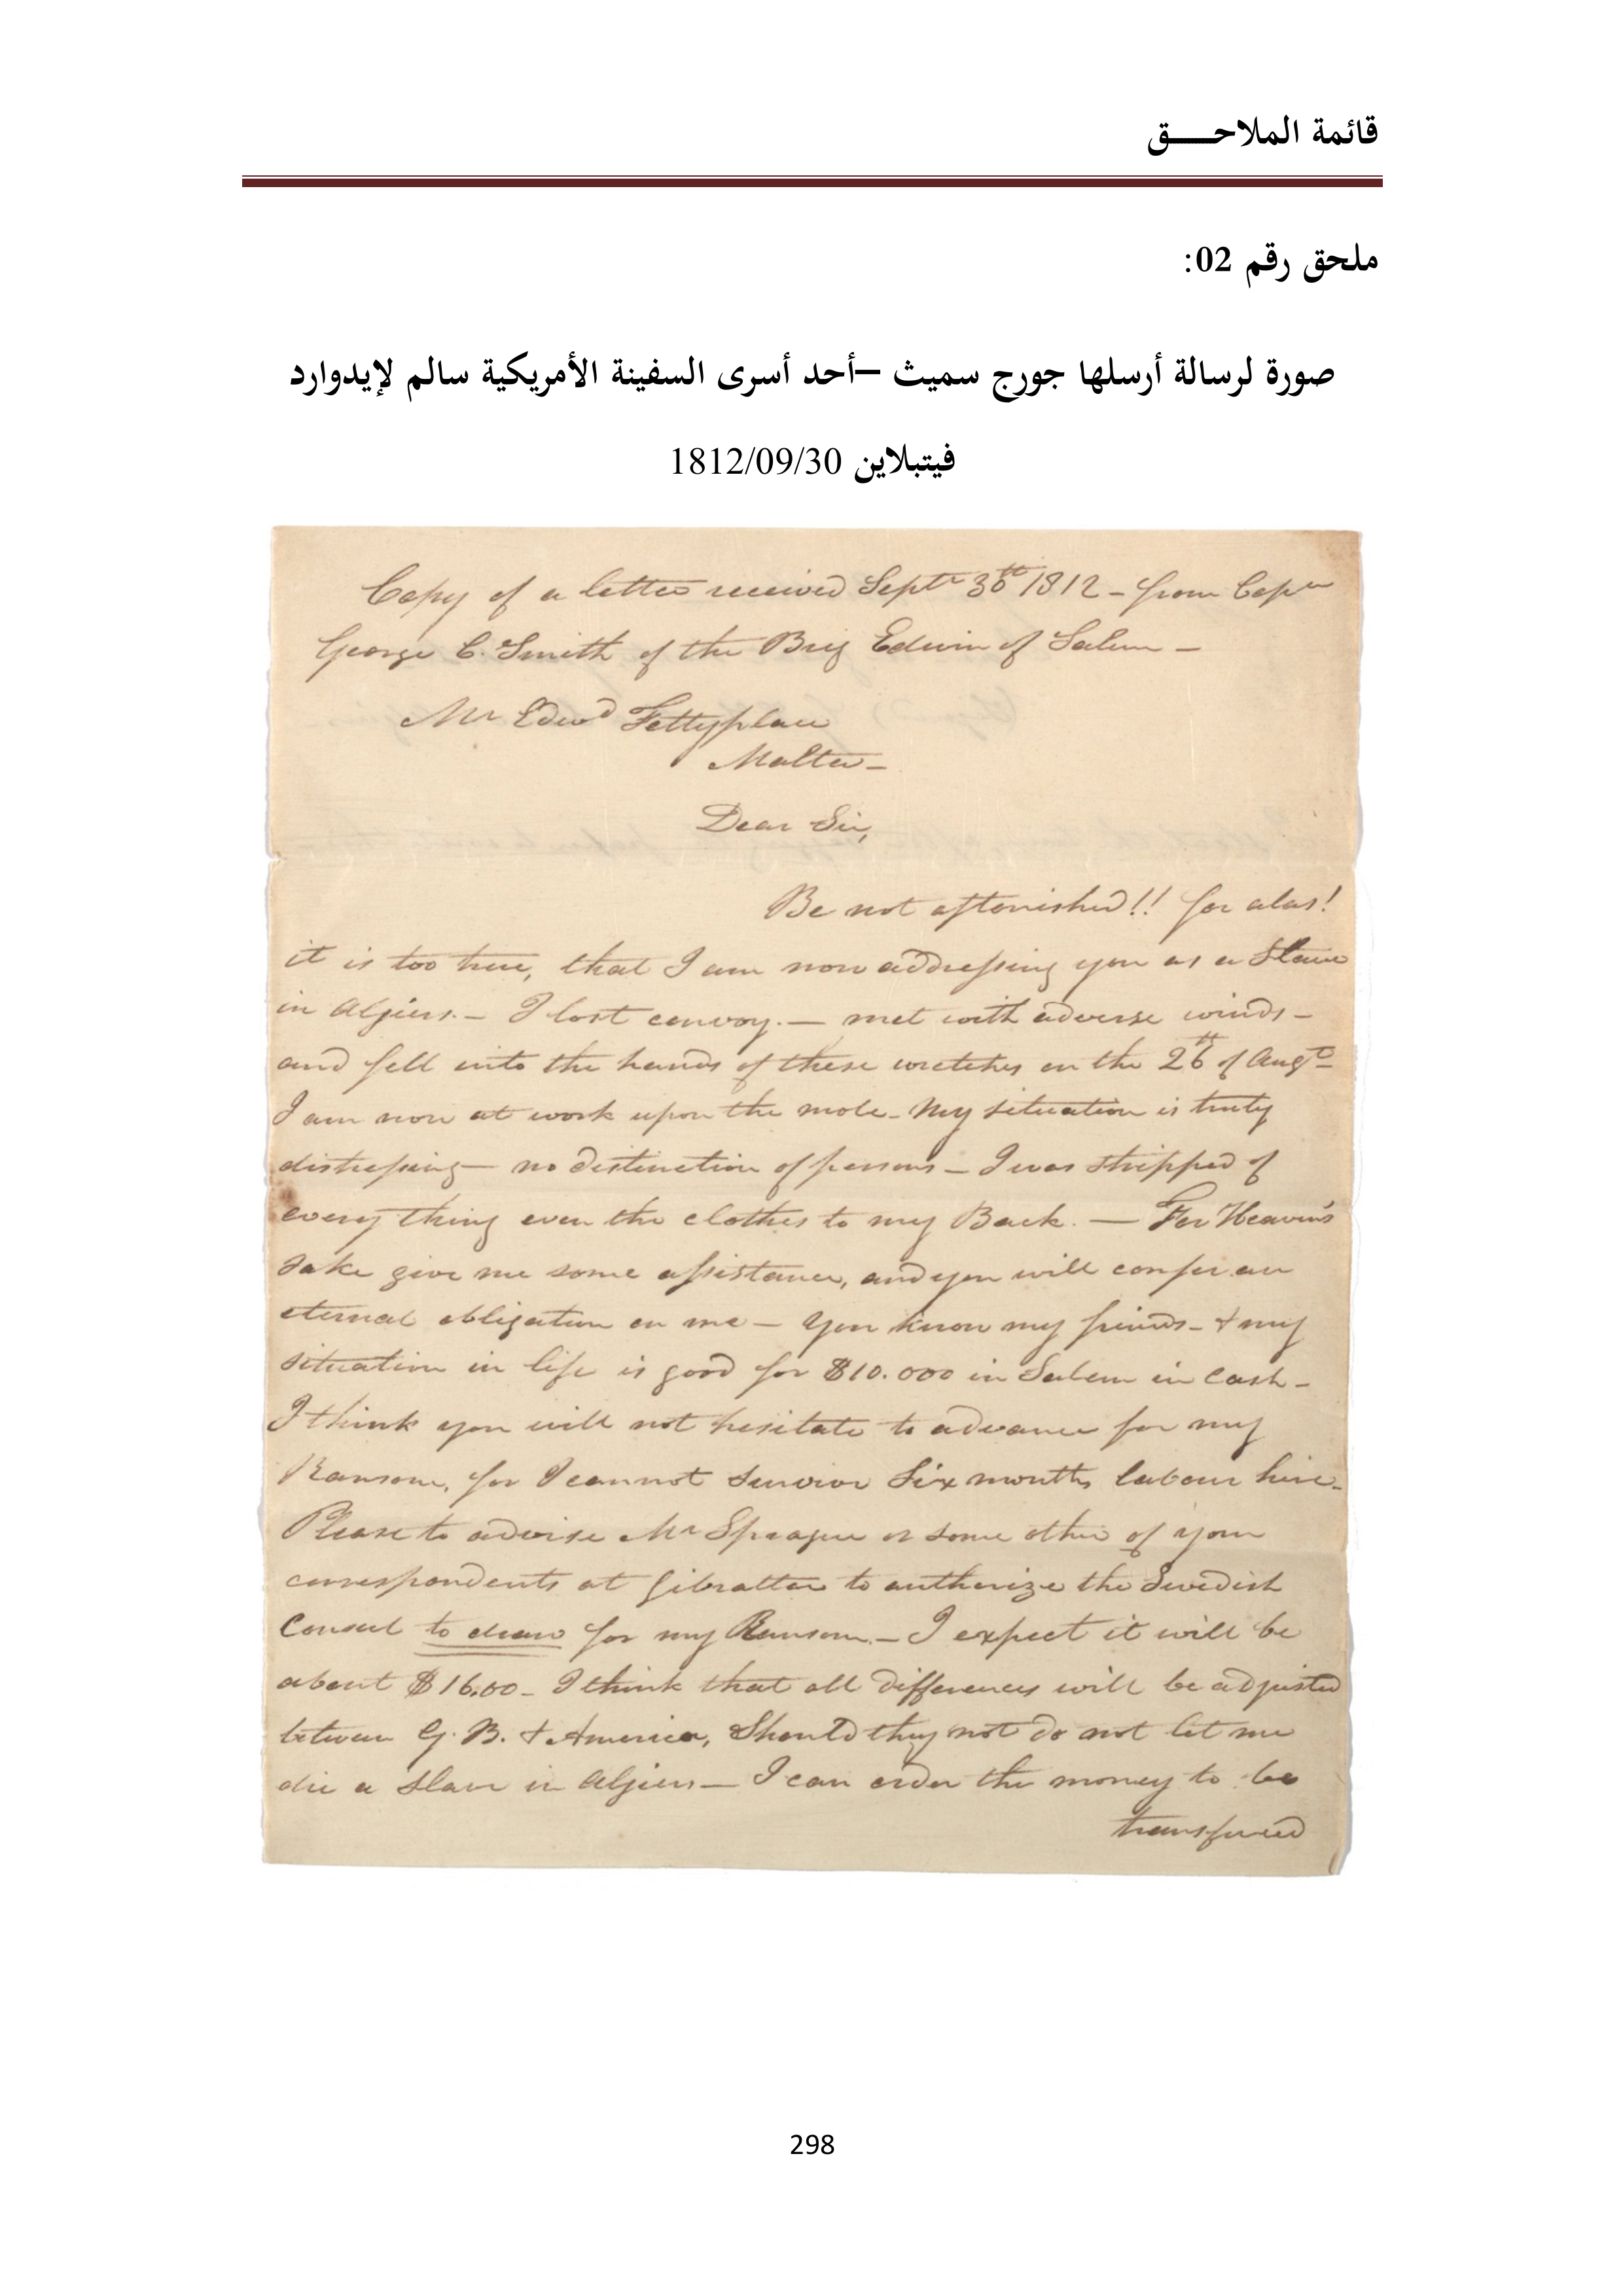 قائمة الملاحـــــق
ملحق رقم 02:
صورة لرسالة أرسلها جورج سميث –أحد أسرى السفينة الأمريكية سالم لإيدوارد
فيتبلاين 1812/09/30
Copy of a letter received Septr 30th 1812 - from Capn
George C. Smith of the Brig Edwin of Salem -
Mr Edwd Fettyplace
Malta -
Dear Sir,
Be not astonished!! for alas!
it is too true, that I am now addressing you as a Slave
in Algiers. - I lost convoy. - met with adverse winds -
and fell into the hands of these wretches on the 26th of Augt
I am now at work upon the mole - My situation is truly
distressing - no distinction of persons - I was stripped of
every thing even the clothes to my Back. - For Heaven's
sake give me some assistance, and you will confer an
eternal obligation on me - You know my friends - & my
situation in life is good for $10.000 in Salem in Cash -
I think you will not hesitate to advance for my
Ransom, for I cannot survive Six months labour here -
Please to advise Mr Sprague or some other of your
correspondents at Gibralter to authorize the Swedish
Consul to draw for my Ransom. - I expect it will be
about $16,00 - I think that all differences will be adjusted
between G. B. & America, Should they not do not let me
die a slave in Algiers - I can order the money to be
transfered
298